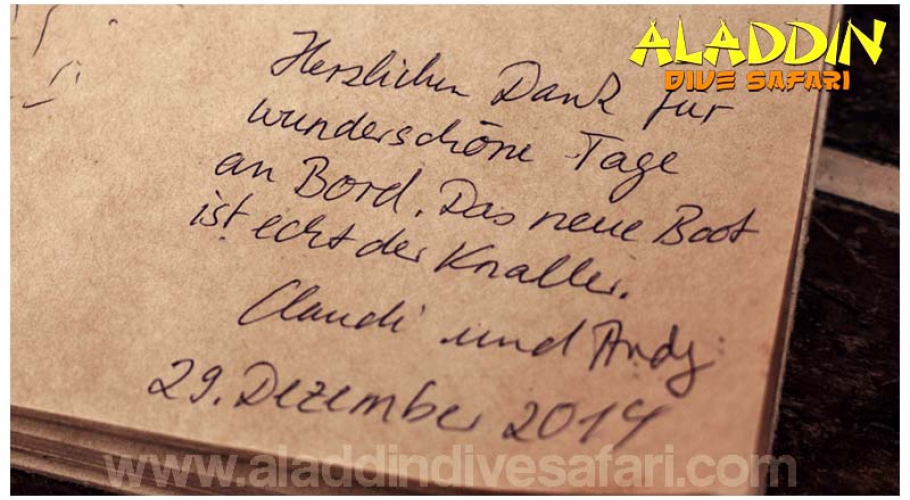 ALADDIN
DIVE SAFARI
Herzlichen Dank für
wunderschöne Tage
an Bord. Das neue Boot
ist echt der Knaller.
Claudi und Andy
29. Dezember 2014
www.aladdindivesafari.com